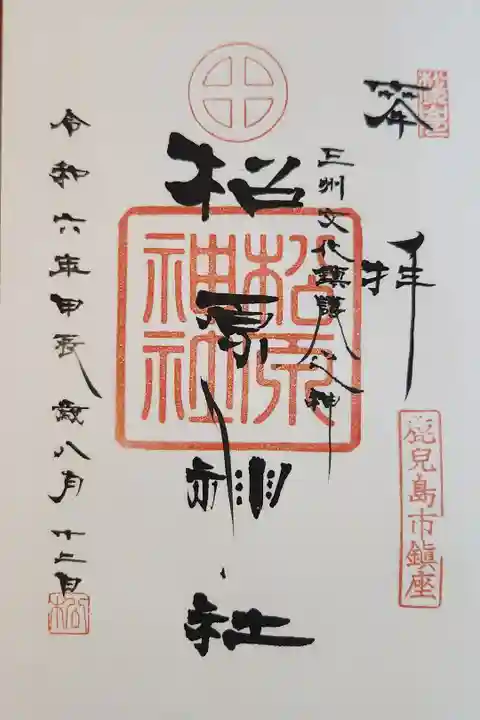 奉拝
鹿児島市鎮座
三州文化鎮護之神
松原神社
松原神社
令和六年甲辰歳八月廿七日
松